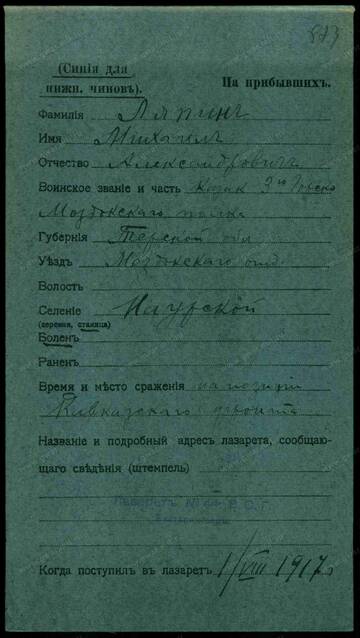 573
(Синія для
нижн. чиновъ).
На прибывшихъ.
Фамилія Ляпинъ
Имя Михаилъ
Отчество Александровичъ
Воинское званіе и часть Казак 3го Горско
Моздокскаго полка
Губернія Терской обл
Уѣздъ Моздокскаго отд.
Волость
Селеніе Наурской
(деревня, станица)
Боленъ
Раненъ
Время и мѣсто сраженія на позиціи
Кавказскаго фронта
Названіе и подробный адресъ лазарета, сообщаю-
щаго свѣдѣнія (штемпель)
Лазаретъ № Р. О. Г.
Когда поступилъ въ лазаретъ 1/VIII 1917 г